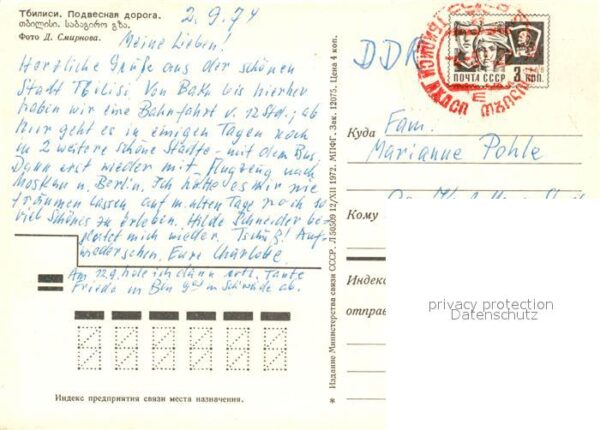 Тбилиси. Подвесная дорога.
თბილისი. საბაგირო გზა.
Фото Д. Смирнова.
2.9.74
Meine Lieben!
Herzliche Grüße aus der schönen
Stadt Tbilisi. Von Baku bis hierher
haben wir eine Bahnfahrt v. 12 Std.; ab
hier geht es in einigen Tagen noch
in 2 weitere schöne Städte - mit dem Bus,
Dann erst wieder mit Flugzeug nach
Moskau u. Berlin. Ich hätte es mir nie
träumen lassen auf m. alten Tage noch so
viel Schönes zu erleben. Hilde Schneider be-
gleitet mich wieder. Tschüß! Auf-
wiedersehen. Eure Charlotte.
Am 12.9. hole ich dann evtl. Tante
Frieda in Bln ab.
Индекс предприятия связи места назначения.
* Издание Министерства связи СССР. Л 50509 12/XII 1972. МПФГ. Зак. 12075. Цена 4 коп.
DDR
ПОЧТА СССР
3 коп.
Куда
Fam.
Marianne Pohle
Кому
Индекс
отправ
privacy protection
Datenschutz